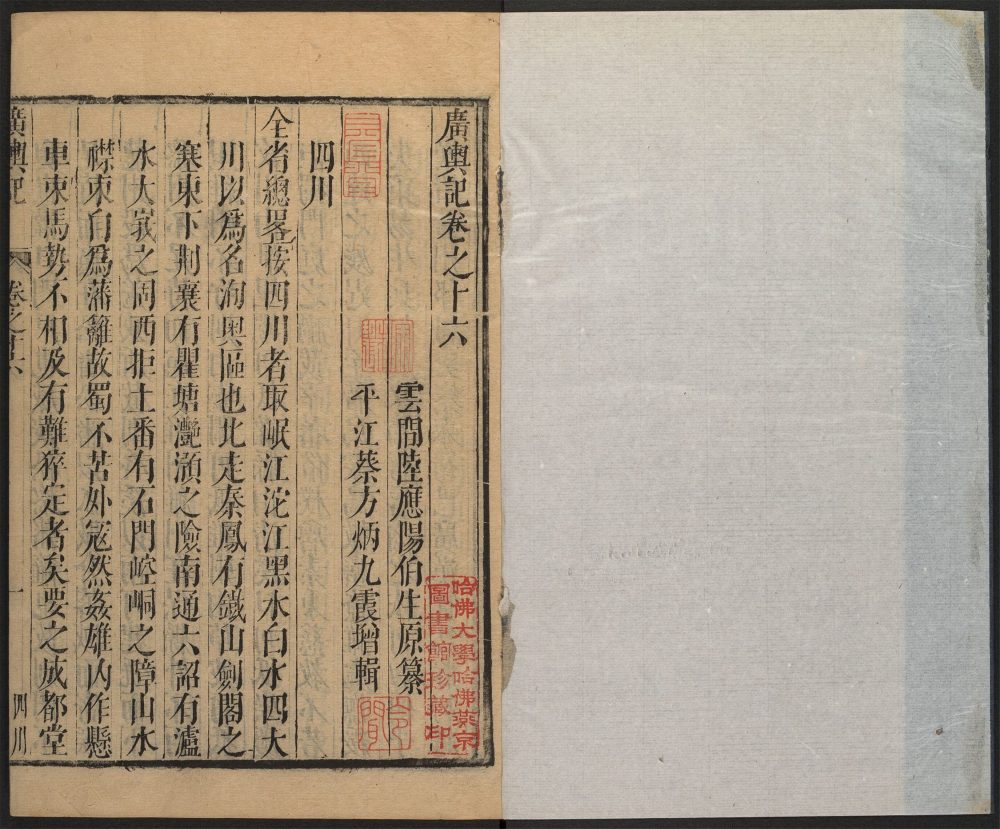 廣輿記卷之十六
雲間陸應陽伯生原纂
平江蔡方炳九霞增輯
四川
全省總畧按四川者取岷江沱江黑水白水四大
川以爲名洵奧區也北走秦鳳有鐵山劍閣之
塞東下荆襄有瞿塘灧澦之險南通六詔有瀘
水大峩之固西拒土番有石門崆峒之障山水
襟束自爲藩籬故蜀不苦外宼然姦雄内作懸
車束馬勢不相及有難猝定者矣要之成都堂
廣輿記
卷之十六
一
四川
哈佛大學哈佛燕京
圖書館珍藏印